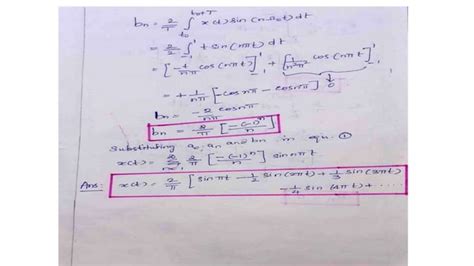 bn = 2/T ∫ x(t) sin (nΩot) dt
= 2/2 ∫ t sin (nπt) dt
= [-t/nπ cos(nπt)] + [1/n²π² cos(nπt)]
= + 1/nπ [-cosnπ - cosnπ] 0
bn = -2cosnπ/nπ
bn = 2/π [-(-1)^n/n]
Substituting ao, an and bn in equ. ①
x(t) = Σ 2/π [-(-1)^n/n] sin nπt
Ans: x(t) = 2/π [sin πt - 1/2 sin(2πt) + 1/3 sin(3πt)
- 1/4 sin(4πt) + ...